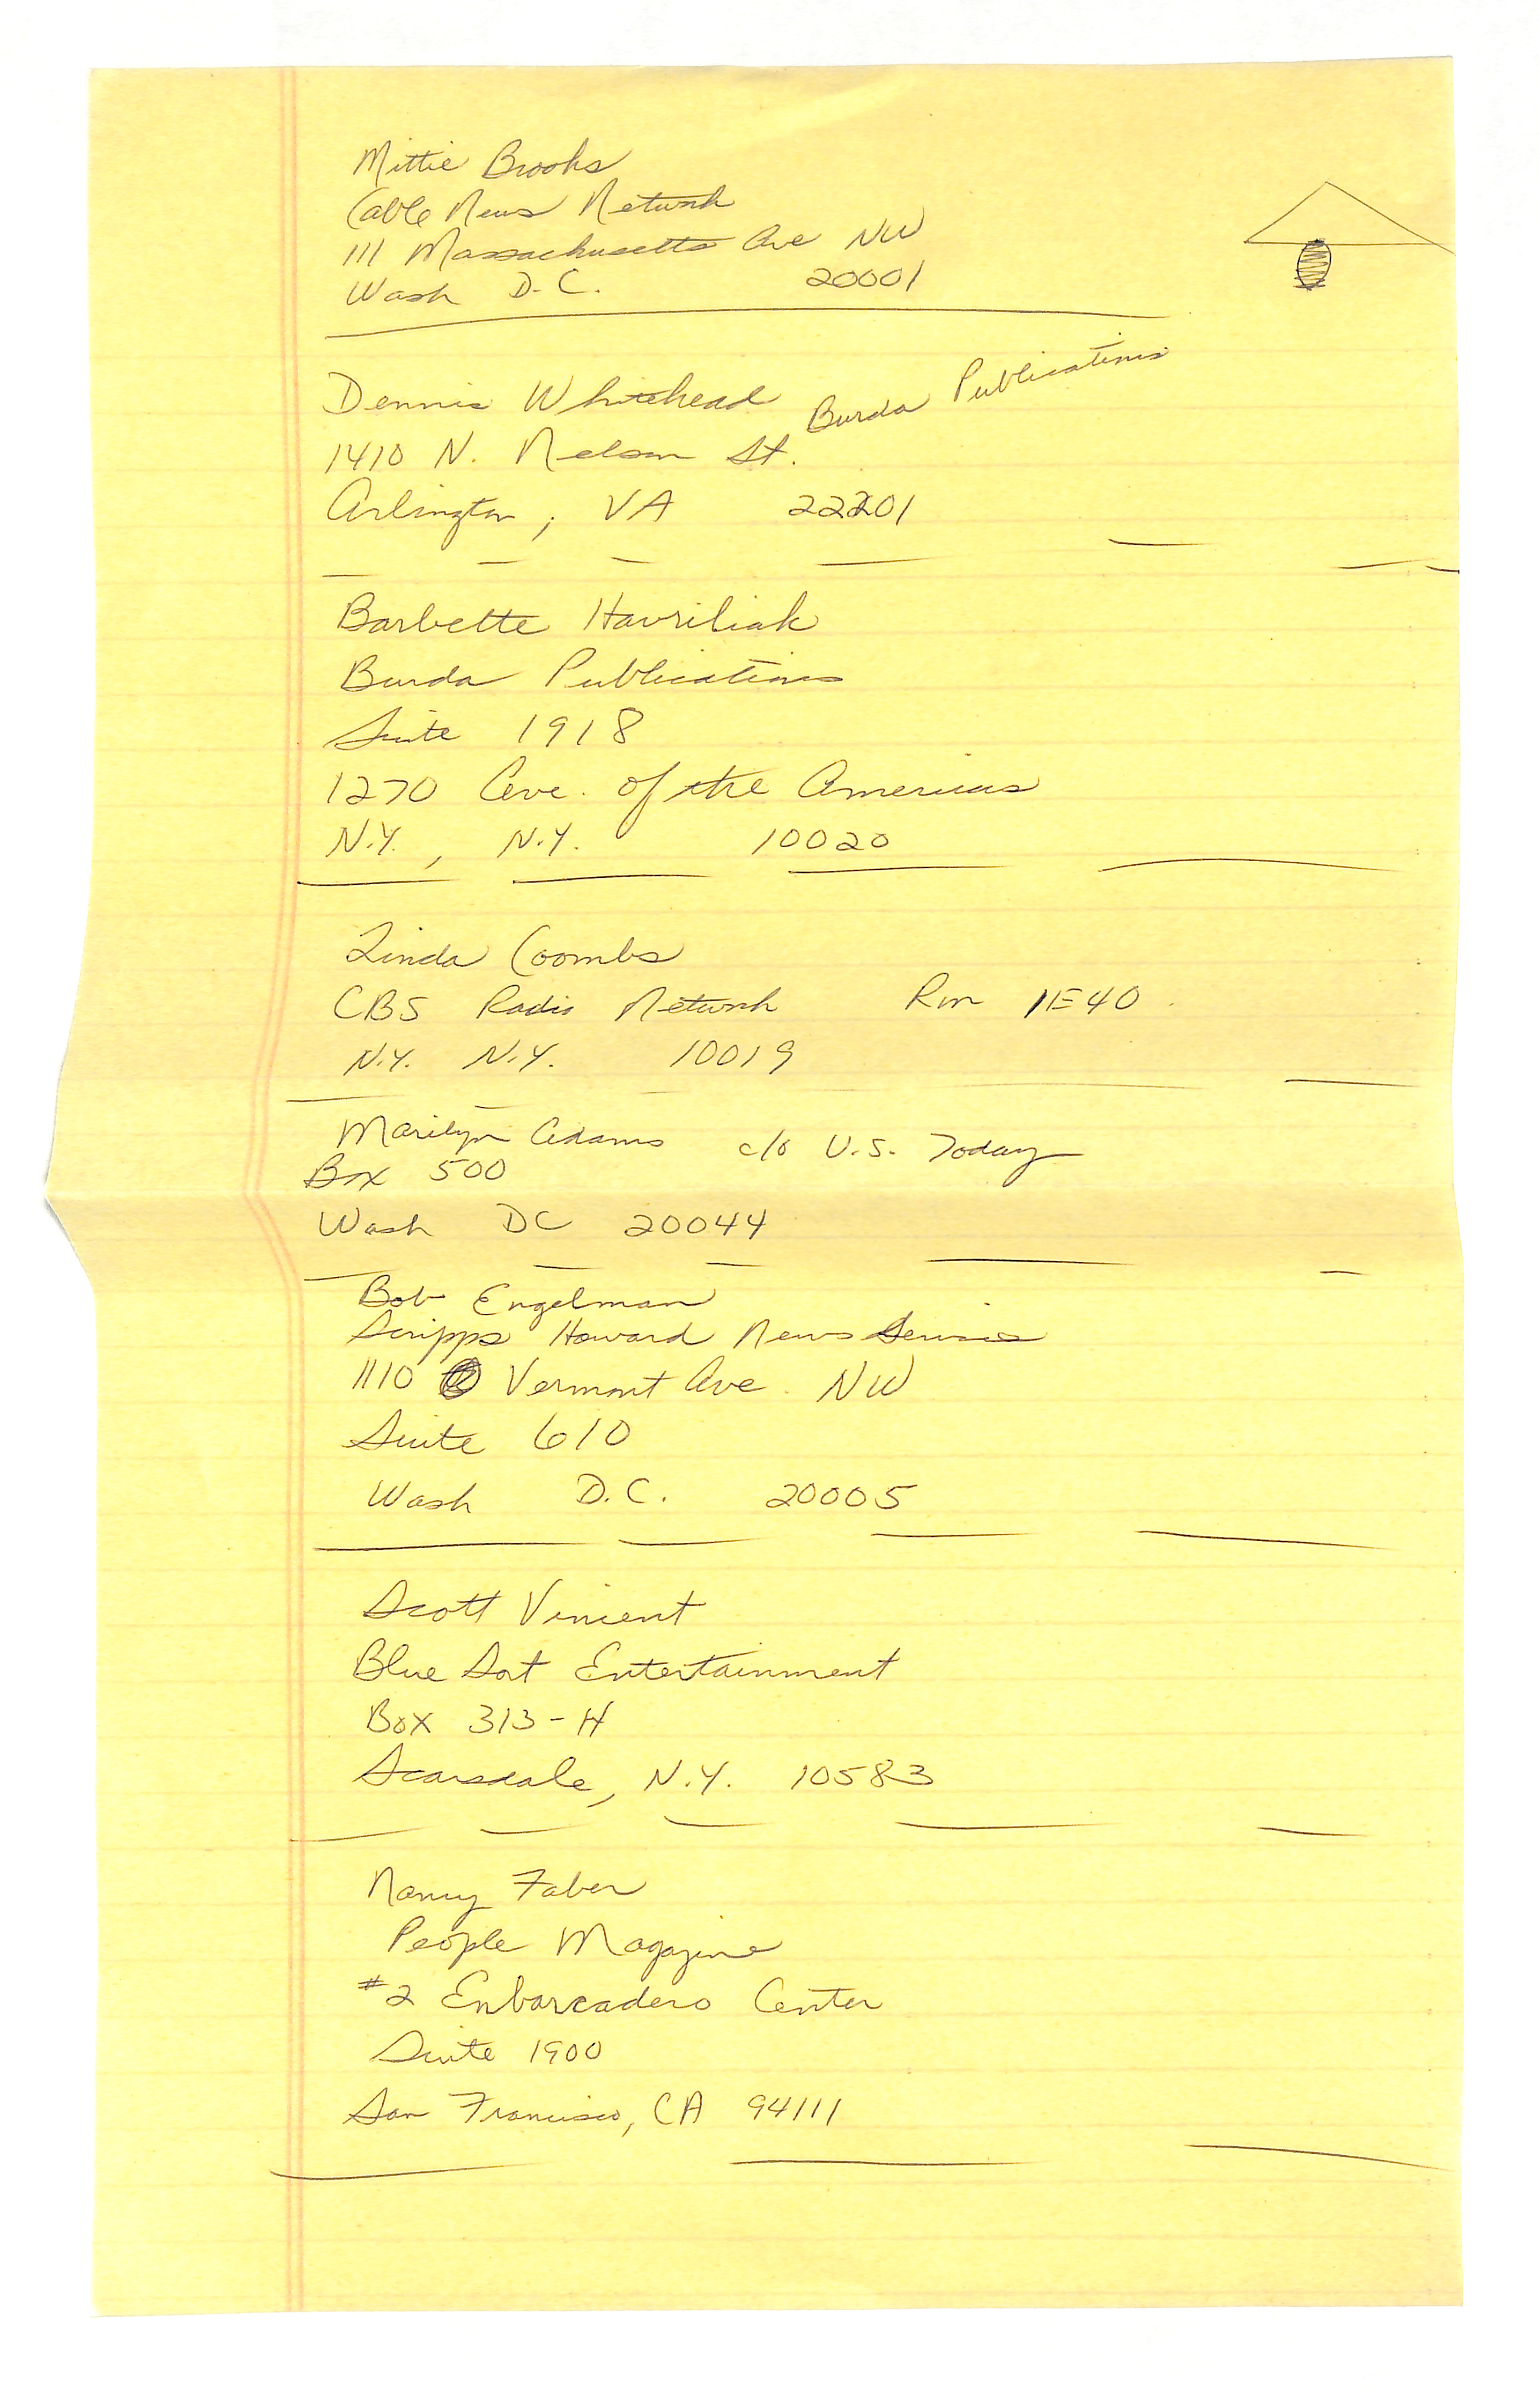 Mittie Brooks
Cable News Network
111 Massachusetts Ave NW
Wash D.C. 20001
Dennis Whitehead Burda Publications
1410 N. Nelson St.
Arlington, VA 22201
Barbette Havriliak
Burda Publications
Suite 1918
1270 Ave. of the Americas
N.Y., N.Y. 10020
Linda Coombs
CBS Radio Network Rm 1E40
N.Y. N.Y. 10019
Marilyn Adams c/o U.S. Today
Box 500
Wash DC 20044
Bob Engelman
Scripps Howard News Service
1110 Vermont Ave. NW
Suite 610
Wash D.C. 20005
Scott Vincent
Blue Dot Entertainment
Box 313-H
Scarsdale, N.Y. 10583
Nancy Faber
People Magazine
#2 Enbarcadero Center
Suite 1900
San Francisco, CA 94111